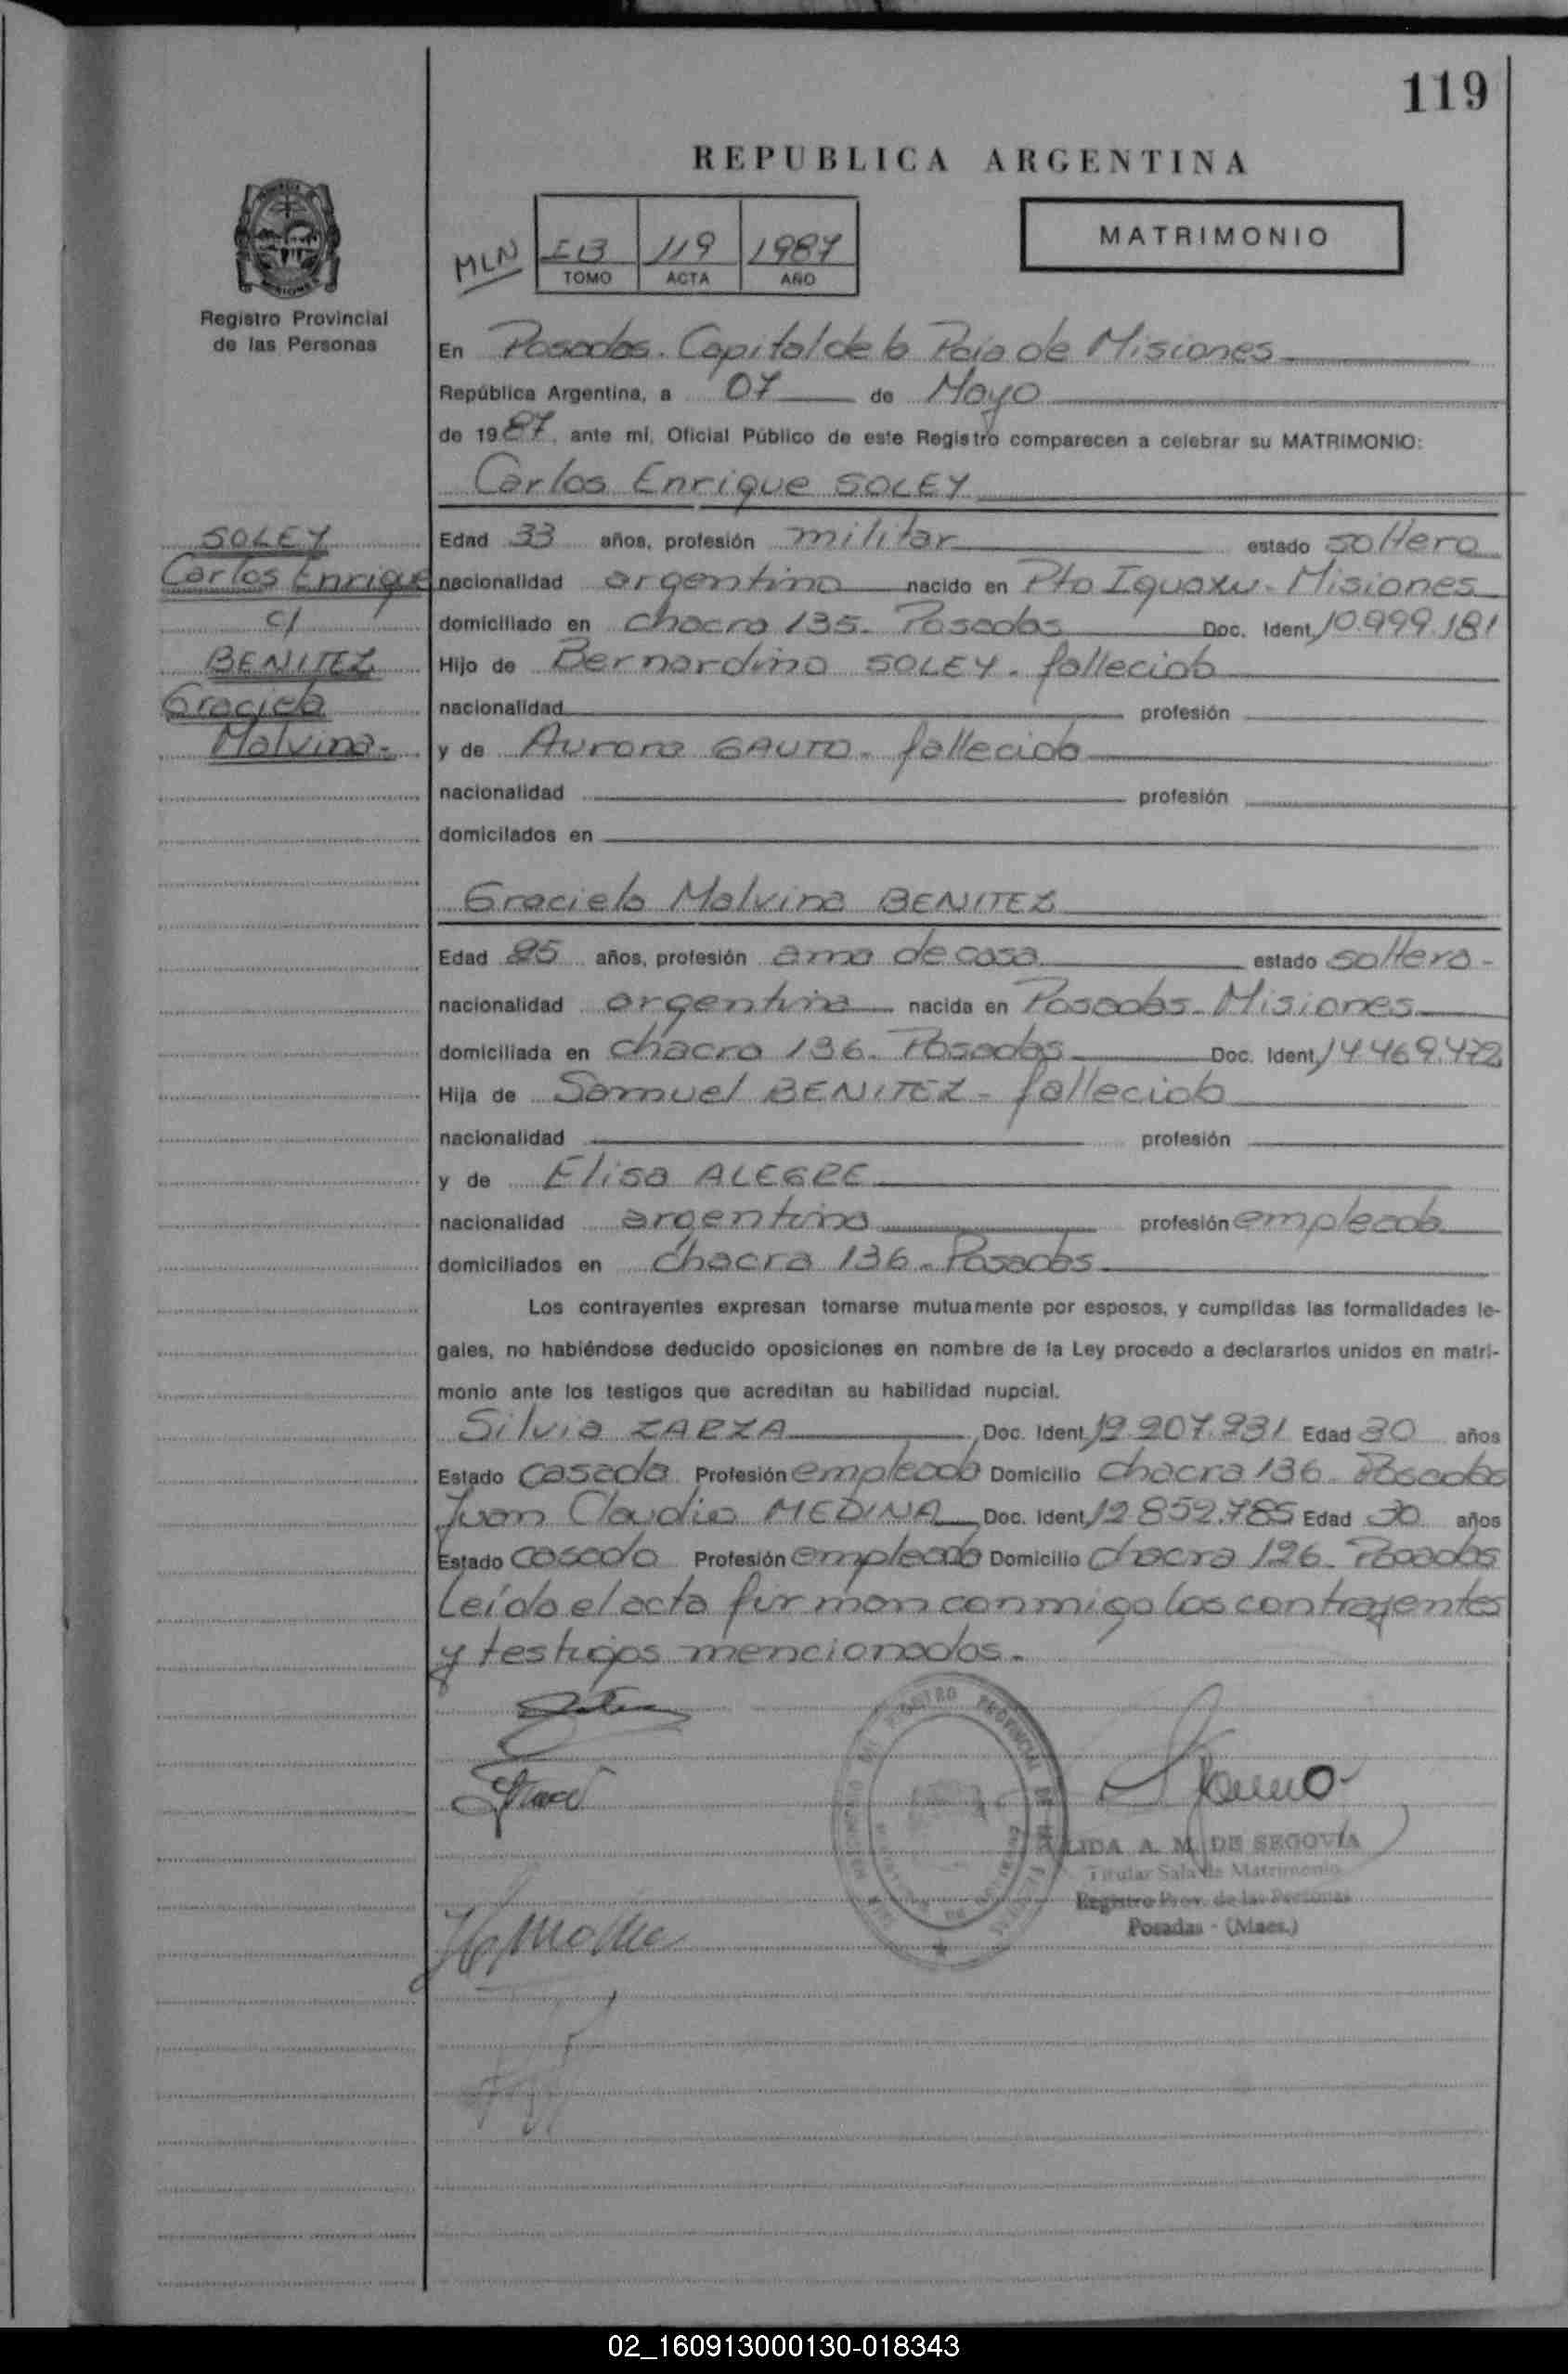 119
REPUBLICA ARGENTINA
MATRIMONIO
MLN
119 1987
TOMO ACTA AÑO
Registro Provincial
de las Personas
En Posadas. Capital de la Pcia de Misiones
República Argentina, a 07 de Mayo
de 1987, ante mí, Oficial Público de este Registro comparecen a celebrar su MATRIMONIO:
Carlos Enrique SOLEY
SOLEY
Carlos Enrique
c/
BENITEZ
Graciela
Malvina.-
Edad 33 años, profesión militar estado soltero
nacionalidad argentino nacido en Pto Iguazu - Misiones
domiciliado en chacra 135. Posadas Doc. Ident. 10.999.181
Hijo de Bernardino SOLEY. fallecido
nacionalidad profesión
y de Aurora GAUTO - fallecida
nacionalidad profesión
domicilados en
Graciela Malvina BENITEZ
Edad 25 años, profesión ama de casa estado soltera -
nacionalidad argentina nacida en Posadas - Misiones
domiciliada en chacra 136. Posadas Doc. Ident. 14.469.472
Hija de Samuel BENITEZ - fallecido
nacionalidad profesión
y de Elisa ALEGRE
nacionalidad argentina profesión empleada
domiciliados en chacra 136 - Posadas
Los contrayentes expresan tomarse mutuamente por esposos, y cumplidas las formalidades le-
gales, no habiéndose deducido oposiciones en nombre de la Ley procedo a declararlos unidos en matri-
monio ante los testigos que acreditan su habilidad nupcial.
Silvia ZARZA Doc. Ident. 12.207.231 Edad 30 años
Estado casada Profesión empleada Domicilio chacra 136. Posadas
Juan Claudio MEDINA Doc. Ident. 12.852.785 Edad 30 años
Estado casado Profesión empleado Domicilio chacra 126. Posadas
Leída el acta firman conmigo los contrayentes
y testigos mencionados.
REGISTRO PROVINCIAL DE LAS PERSONAS
LIDA A. M. DE SEGOVIA
Titular Sala de Matrimonio
Registro Prov. de las Personas
Posadas - (Mnes.)
02_160913000130-018343